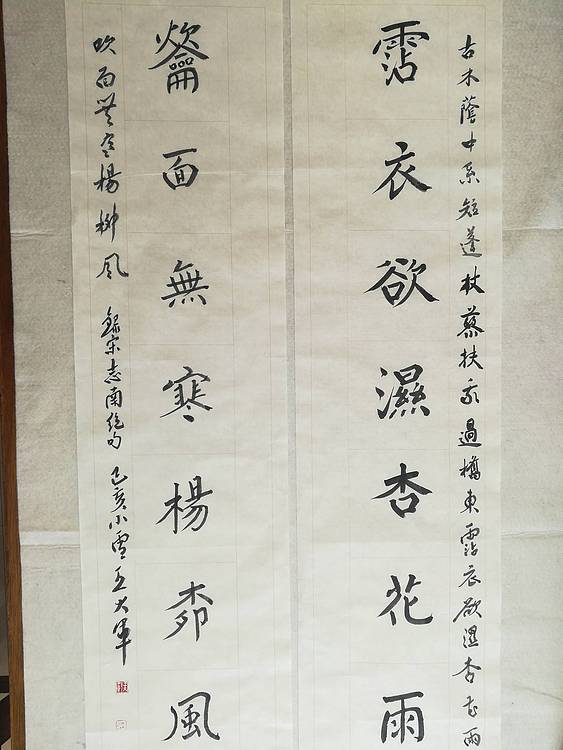 古木蔭中系短蓬杖藜扶我過橋東霑衣欲濕杏花雨
霑衣欲濕杏花雨
龡面無寒楊柳風
吹面無寒楊柳風 錄宋志南絕句 己亥小雪王大軍